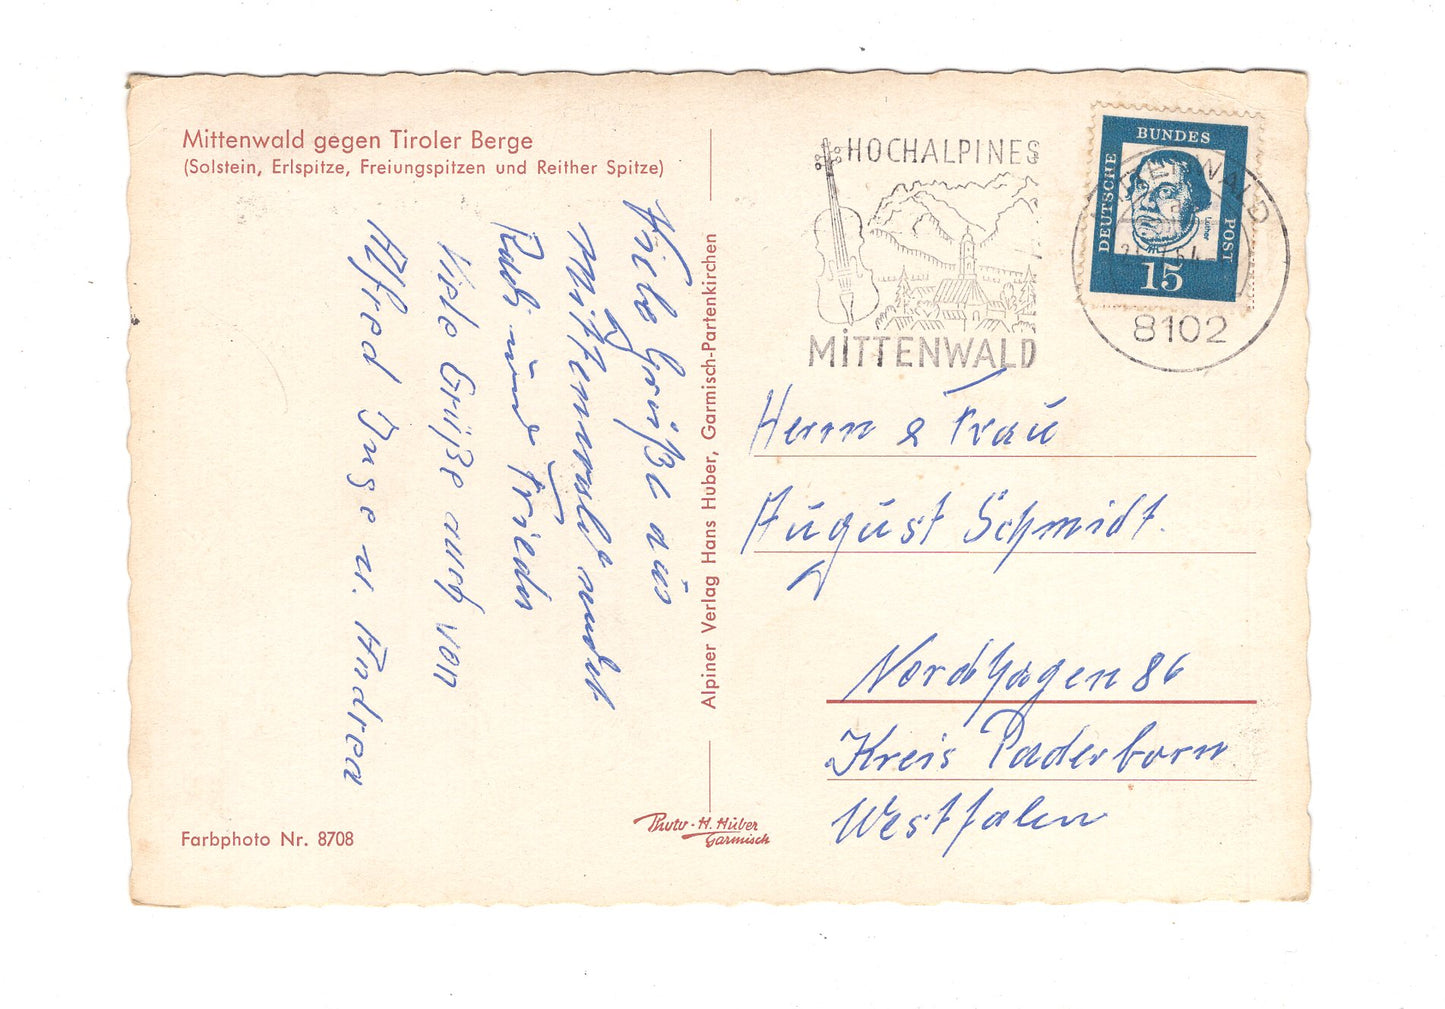 Mittenwald gegen Tiroler Berge
(Solstein, Erlspitze, Freiungspitzen und Reither Spitze)
Viele Grüße aus
Mittenwald sendet
und Frieda
Viele Grüße auch von
Alfred Inge u. Andrea
Farbphoto Nr. 8708
Alpiner Verlag Hans Huber, Garmisch-Partenkirchen
Photo-H. Huber
Garmisch
HOCHALPINES
MITTENWALD
DEUTSCHE BUNDES POST
Luther
15
MITTENWALD
8102
Herrn & Frau
August Schmidt.
Nordhagen 86
Kreis Paderborn
Westfalen